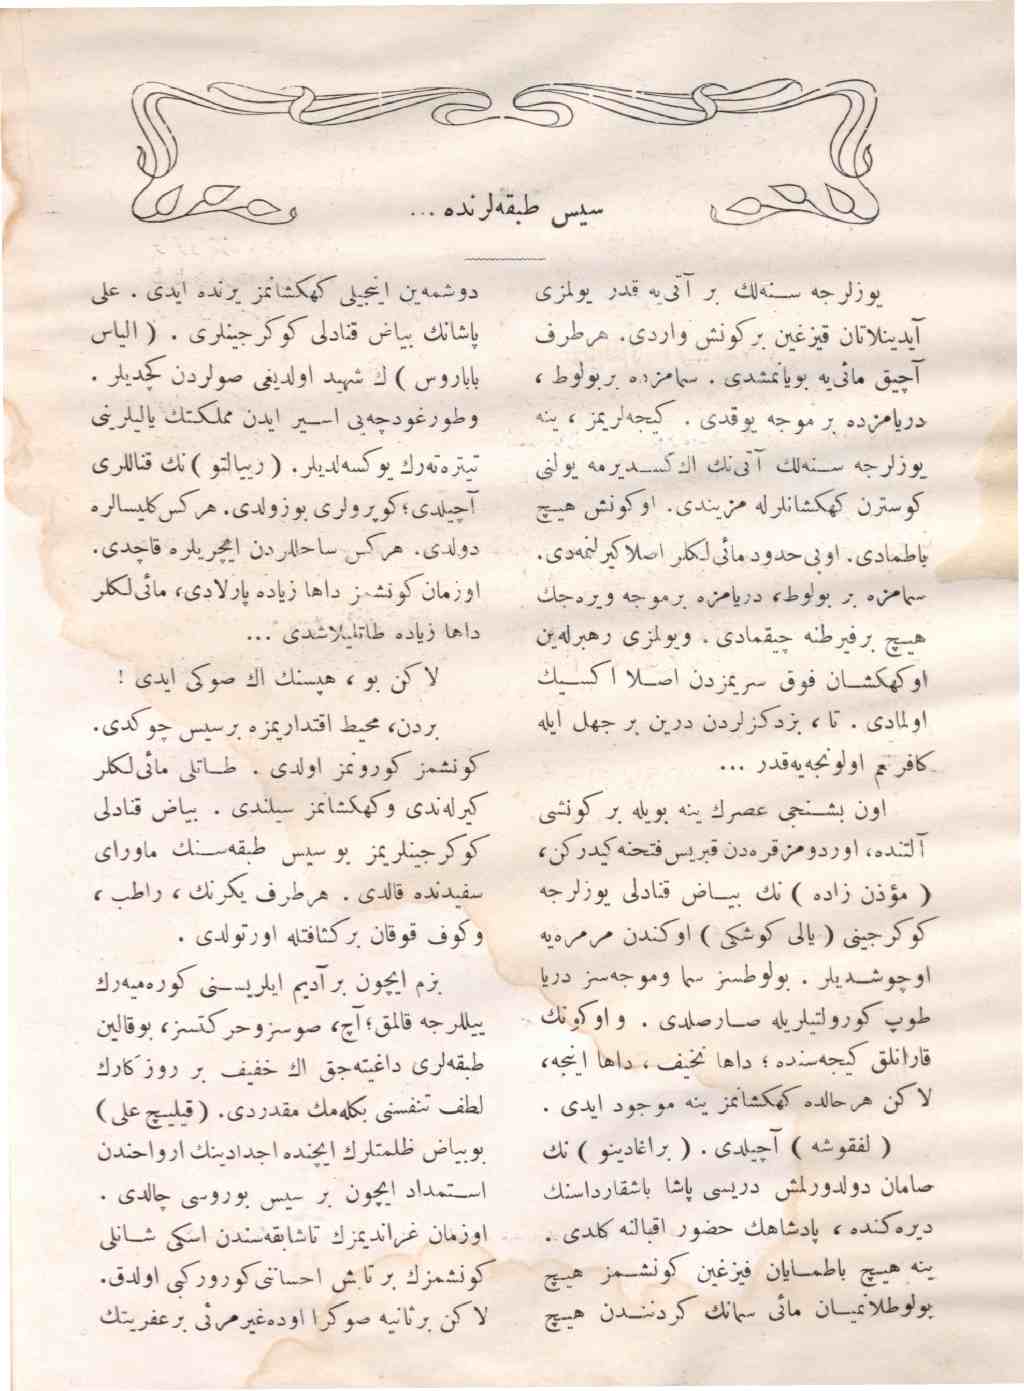 سیس طبقه‌لرنده ...
یوزلرجه سنه‌لك بر آتی‌یه قدر یولمزی
آیدینلاتان قیزغین بر كونش واردی. هرطرف
آچیق مائی‌یه بویانمشدی . سمامزده بر بولوط ،
دریامزده بر موجه یوقدی . كیجه‌لریمز ، ینه
یوزلرجه سنه‌لك آتی‌نك اك كسدیرمه یولنی
كوسترن كهكشانلرله مزیندی. او كونش هیچ
باطمادی. او بی‌حدود مائی‌لكلر اصلا كیرلنمه‌دی.
سمامزه بر بولوط، دریامزه بر موجه ویره‌جك
هیچ بر فیرطنه چیقمادی . و یولمزی رهبرله‌ین
او كهكشان فوق سریمزدن اصلا اكسیك
اولمادی . تا ، بزدكزلردن درین بر جهل ایله
كافر نعم اولونجه‌یه‌قدر ...
اون بشنجی عصرك ینه بویله بر كونشی
آلتنده، اوردومز قره‌دن قبریس فتحنه كیدركن،
( مؤذن زاده ) نك بیاض قنادلی یوزلرجه
كوكرجینی ( یالی كوشكی ) اوكندن مرمره‌یه
اوچوشدیلر . بولوطسز سما و موجه‌سز دریا
طوپ كورولتیلریله صارصلدی . و او كونك
قارانلق كیجه‌سنده ؛ داها نحیف ، داها اینجه،
لاكن هر حالده كهكشانمز ینه موجود ایدی .
( لفقوشه ) آچیلدی . ( براغادینو ) نك
صامان دولدورلمش دریسی پاشا باشقارداسنك
دیره‌كنده ، پادشاهك حضور اقبالنه كلدی .
ینه هیچ باطمایان قیزغین كونشمز هیچ
بولوطلانمیان مائی سمانك كردنندن هیچ
دوشمه‌ین اینجیلی كهكشانمز یرنده ایدی . علی
پاشانك بیاض قنادلی كوكرجینلری . ( الیاس
باباروس ) ك شهید اولدیغی صولردن كچدیلر .
وطورغودجه‌یی اسیر ایدن مملكتك یالیلرینی
تیتره‌ته‌رك یوكسه‌لدیلر. ( رییالتو ) نك قناللری
آچیلدی؛ كوپرولری بوزولدی. هر كس كلیسالره
دولدی. هر كس ساحللردن ایچریلره قاچدی.
اوزمان كونشمز داها زیاده پارلادی، مائی‌لكلر
داها زیاده طاتلیلاشدی ...
لاكن بو ، هپسنك اك صوكی ایدی !
بردن، محیط اقتداریمزه بر سیس چوكدی.
كونشمز كورونمز اولدی . طاتلی مائی‌لكلر
كیرله‌ندی و كهكشانمز سیلندی . بیاض قنادلی
كوكرجینلریمز بو سیس طبقه‌سنك ماورای
سفیدنده قالدی . هرطرف یكرنك ، راطب ،
و كوف قوقان بر كثافتله اورتولدی .
بزم ایچون بر آدیم ایلریسنی كوره‌میه‌رك
ییللرجه قالمق؛ آچ، صوسز و حركتسز، بو قالین
طبقه‌لری داغیته‌جق اك خفیف بر روزكارك
لطف تنفسنی بكله‌مك مقدردی. ( قیلیچ علی )
بو بیاض ظلمتلرك ایچنده اجدادینك ارواحندن
استمداد ایچون بر سیس بوروسی چالدی .
اوزمان غراندیمزك تاشابقه‌سندن اسكی شانلی
كونشمزك بر تابش احسانی كورور كبی اولدق.
لاكن بر ثانیه صوكرا اوده غیرمرئی بر عفریتك